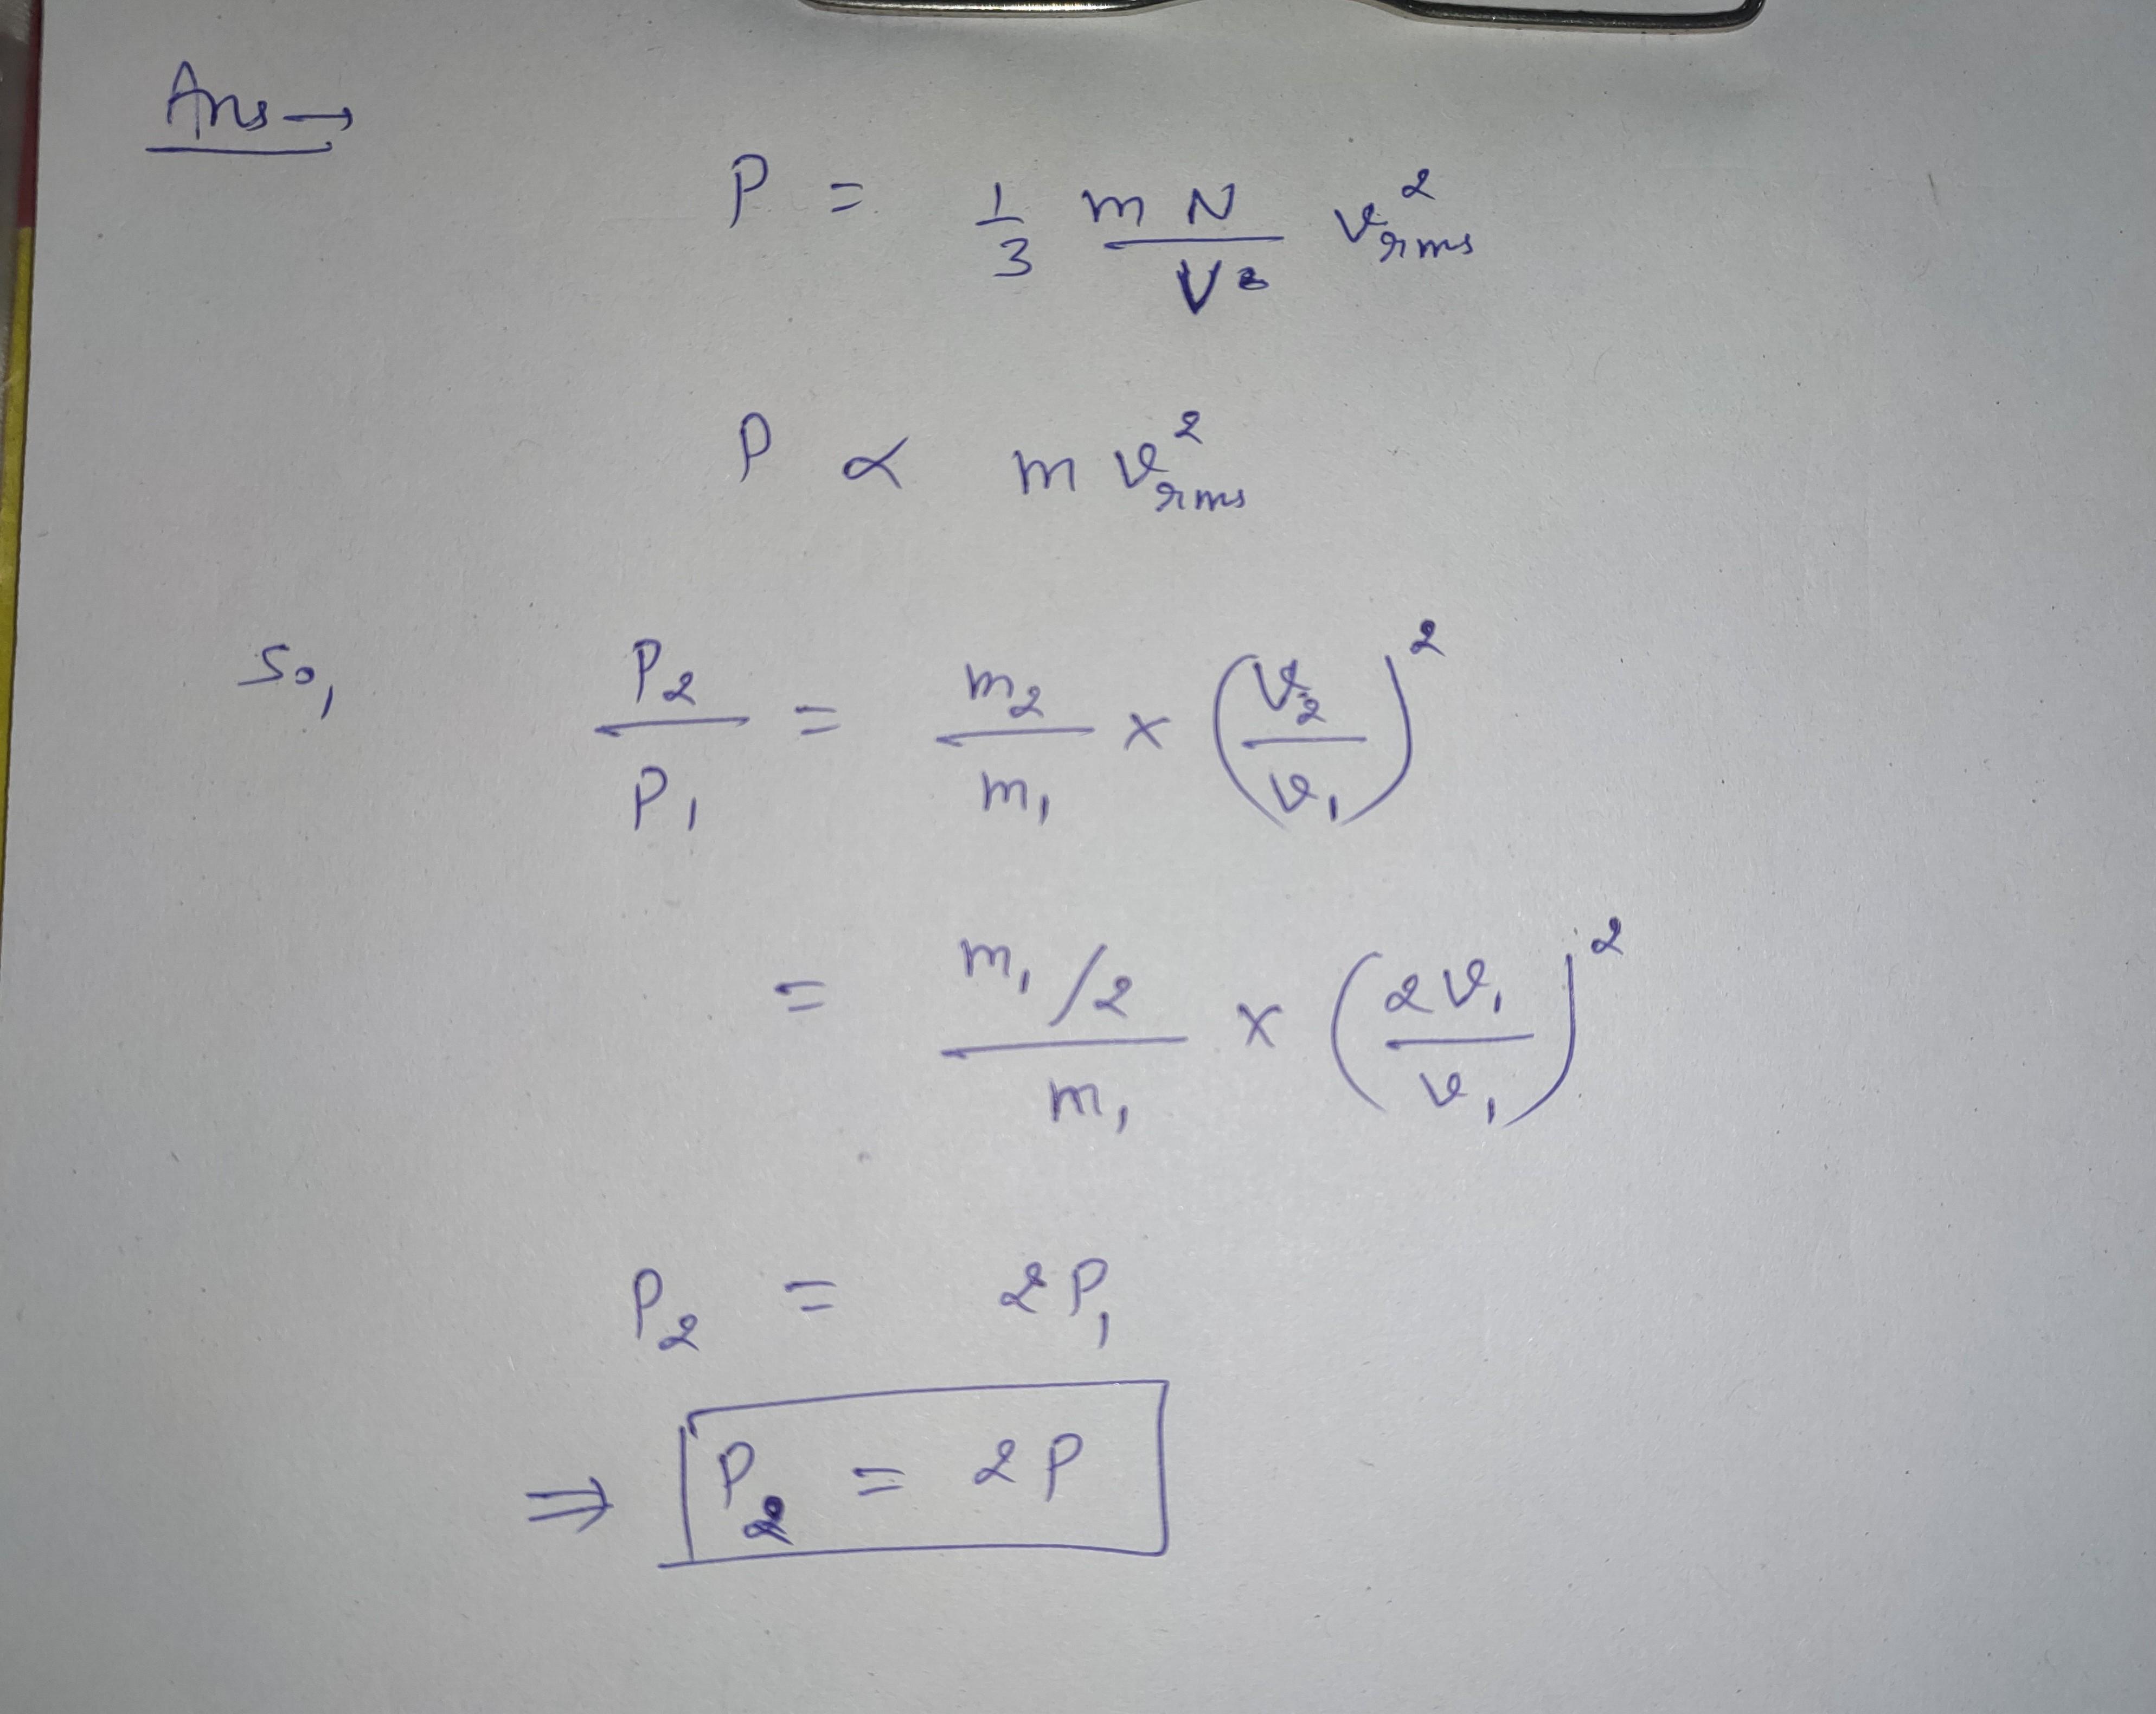 Ans →
P = 1/3 mN/V² v²rms
P ∝ m v²rms
So, P₂/P₁ = m₂/m₁ × (v₂/v₁)²
= (m₁/2)/m₁ × (2v₁/v₁)²
P₂ = 2P₁
⇒ P₂ = 2P